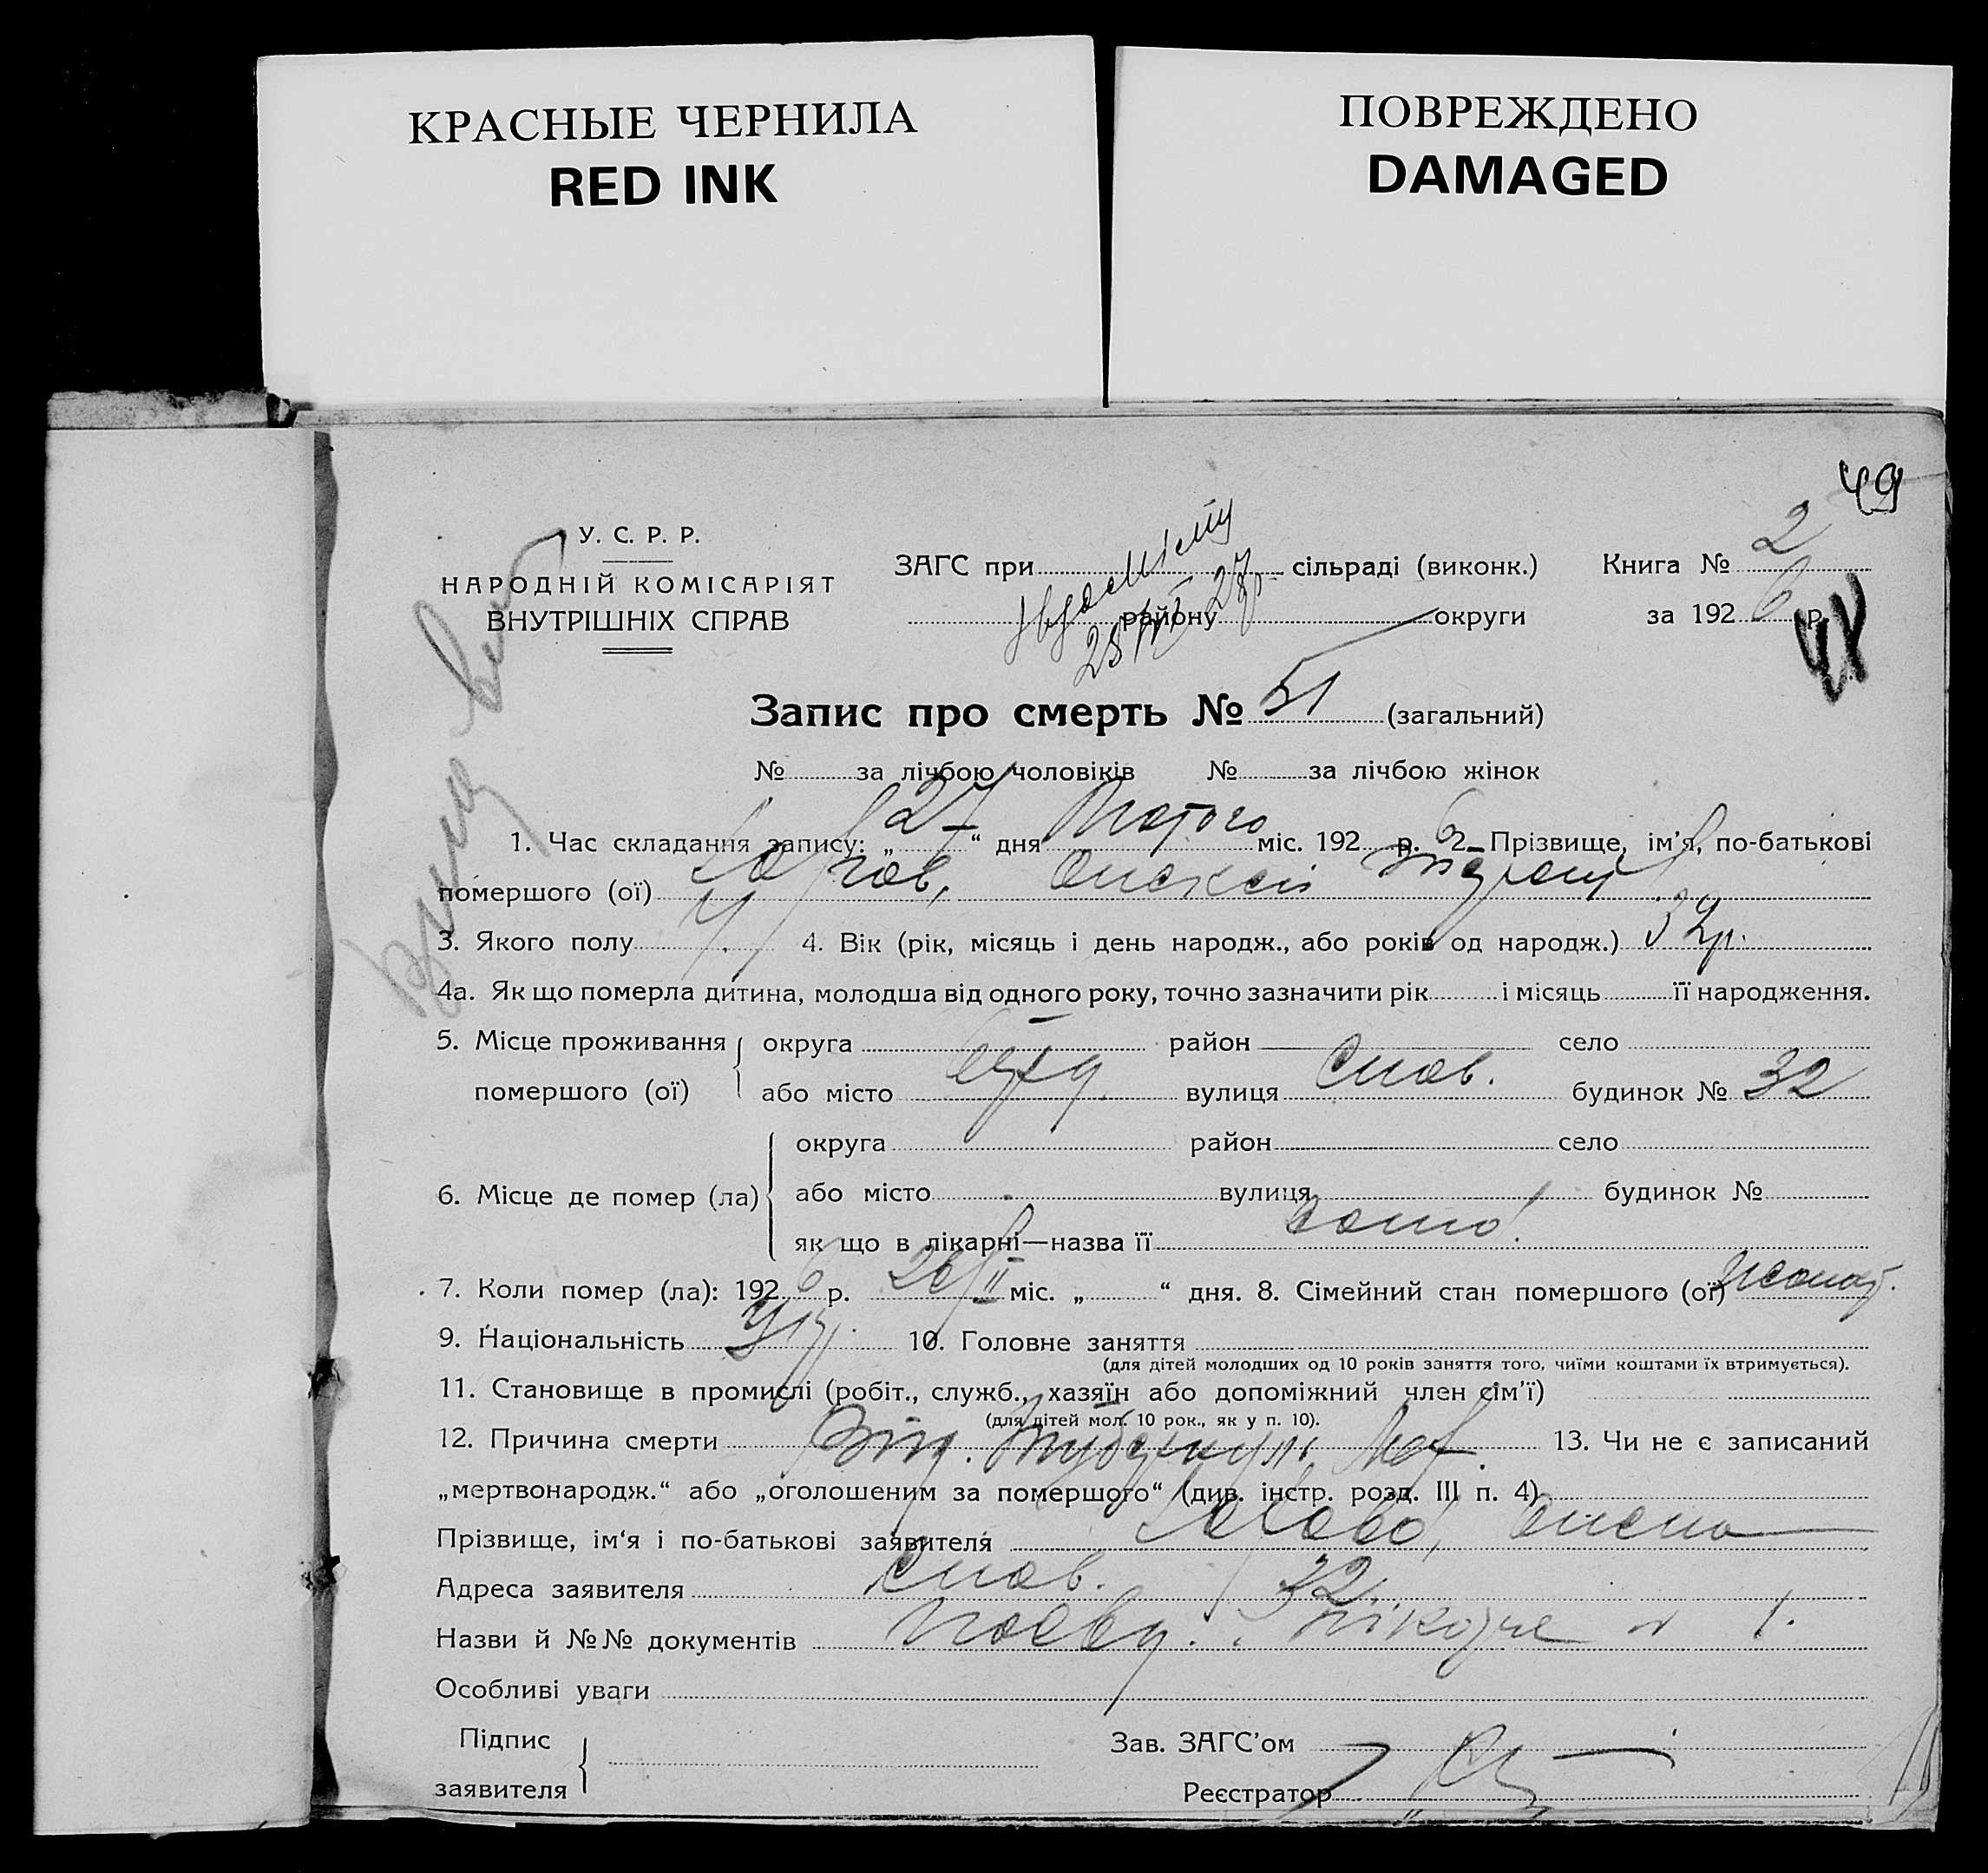 КРАСНЫЕ ЧЕРНИЛА
RED INK
ПОВРЕЖДЕНО
DAMAGED
49
У. С. Р. Р.
НАРОДНІЙ КОМІСАРІЯТ
ВНУТРІШНІХ СПРАВ
ЗАГС при сільраді (виконк.) Книга № 2
району округи за 192 6 р.
Запис про смерть № 51 (загальний)
№ за лічбою чоловіків № за лічбою жінок
1. Час складання запису: „ 27 “ дня Лютого міс. 192 р. 6 2. Прізвище, ім’я, по-батькові
помершого (ої) Олексій
3. Якого полу Ч. 4. Вік (рік, місяць і день народж., або років од народж.) 32 р.
4а. Як що померла дитина, молодша від одного року, точно зазначити рік і місяць її народження.
5. Місце проживання округа район село
помершого (ої) або місто вулиця Слов. будинок № 32
округа район село
6. Місце де помер (ла) або місто вулиця будинок №
як що в лікарні—назва її
7. Коли помер (ла): 192 6 р. 26/II міс. „ “ дня. 8. Сімейний стан помершого (ої) жонат.
9. Національність Укр. 10. Головне заняття
(для дітей молодших од 10 років заняття того, чиїми коштами їх втримується).
11. Становище в промислі (робіт., служб., хазяїн або допоміжний член сім’ї)
(для дітей мол. 10 рок., як у п. 10).
12. Причина смерти Від. Туберкул. Лег. 13. Чи не є записаний
„мертвонародж.“ або „оголошеним за помершого“ (див. інстр. розд. III п. 4)
Прізвище, ім‘я і по-батькові заявителя Олена
Адреса заявителя Слов. 32
Назви й №№ документів Посвід. лікаря № 1.
Особливі уваги
Підпис
заявителя
Зав. ЗАГС’ом
Реєстратор